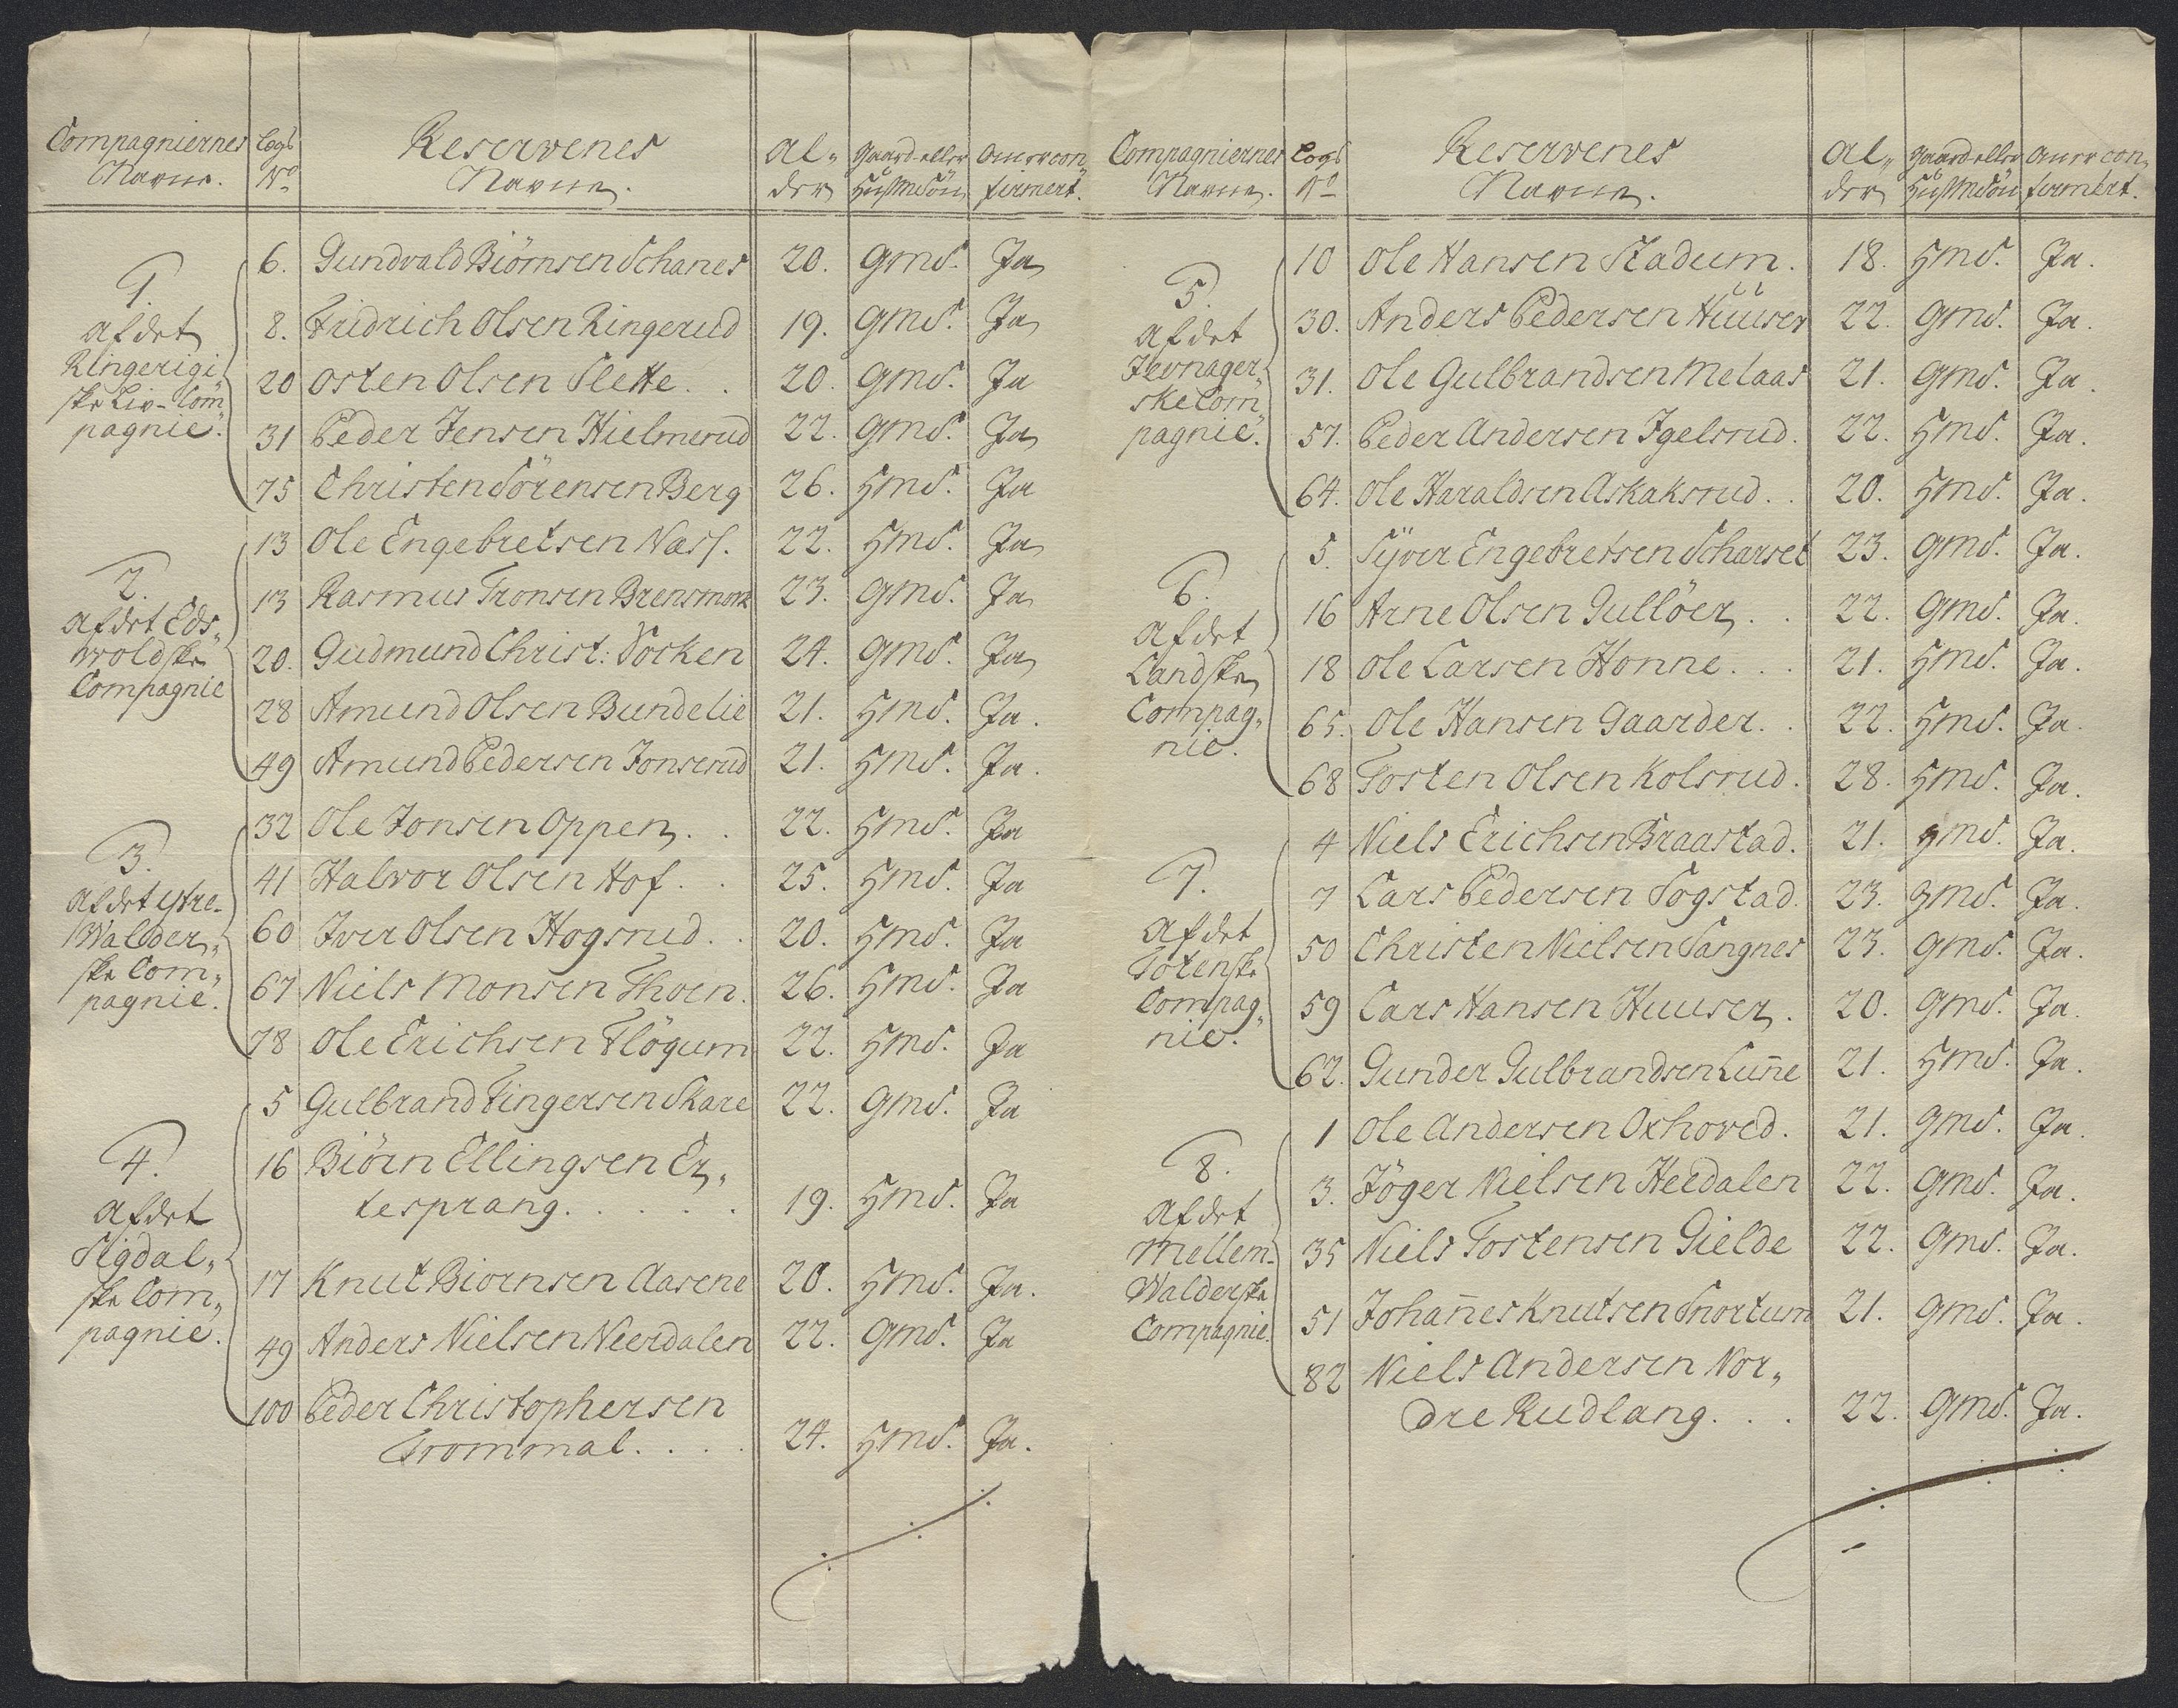 Compagniernes Lægs Reservenes Al- Gaard eller Om er con-
Navne. No Navne. der Huusmdsön firmert.
1.
af det
Ringerigi
ske Liv-Com
pagnie.
6. Gundvald Biörnsen Schanes 20. Gmds. Ja
8. Fridrich Olsen Ringerud 19. Gmds. Ja
20 Osten Olsen Slette . . 20. Gmds. Ja
31 Peder Jensen Hielmerud 22. Gmds. Ja
75 Christen Sörensen Berg 26. Hmds. Ja
2.
af det Eds-
wroldske
Compagnie
13 Ole Engebretsen Næss. 22. Hmds. Ja
13 Rasmus Tronsen Brensmork 23. Gmds. Ja
20. Gudmund Christ: Vorken 24. Gmds. Ja
28 Amund Olsen Bundelie 21. Hmds. Ja.
49 Amund Pedersen Jonserud 21. Hmds. Ja.
3.
af det ystre-
Walder-
ske Com-
pagnie.
32 Ole Jonsen Oppen . . 22. Hmds. Ja
41 Halvor Olsen Hof . . 25. Hmds. Ja
60 Iver Olsen Hogsrud . . 20. Hmds. Ja
67 Niels Monsen Thoen. 26. Hmds. Ja
78 Ole Erichsen Flögum 22. Hmds. Ja
4.
af det
Sigdal-
ske Com-
pagnie.
5 Gulbrand Fingersen Skare 22. Gmds. Ja
16 Biörn Ellingsen Er-
tesprang. . . . . 19. Hmds. Ja
17 Knut Biörnsen Aasene 20. Hmds. Ja.
49 Anders Nielsen Neerdalen 22. Gmds. Ja
100 Peder Christophersen
Trommal. . . . 24. Hmds. Ja.
Compagniernes Lægs Reservenes Al- Gaard eller Om er con-
Navne. No Navne. der Huusmdsön firmert.
5.
af det
Jevnager-
ske Com-
pagnie.
10 Ole Hansen Stadum. 18. Hmds. Ja.
30. Anders Pedersen Huuser 22. Gmds. Ja.
31. Ole Gulbrandsen Melaas 21. Gmds. Ja.
57. Peder Andersen Igelsrud. 22. Hmds. Ja.
64. Ole Haraldsen Askaksrud. . 20. Hmds. Ja.
6.
af det
Landske
Compag-
nie.
5. Syver Engebretsen Scharset 23. Gmds. Ja.
16 Arne Olsen Gullöer . . 22. Gmds. Ja.
18 Ole Larsen Honne . . . 21. Hmds. Ja.
65. Ole Hansen Gaarder. . 22. Hmds. Ja.
68 Tosten Olsen Kolsrud. 28. Hmds. Ja.
7.
af det
Totenske
Compag-
nie.
4 Niels Erichsen Braastad. 21. Hmds. Ja.
7 Lars Pedersen Sogstad. 23. Gmds. Ja.
50 Christen Nielsen Sangnes 23. Gmds. Ja.
59 Lars Hansen Huuser. . 20. Gmds. Ja.
62. Gunder Gulbrandsen Lun̄e 21. Hmds. Ja.
8.
af det
Mellem-
Walderske
Compagnie.
1 Ole Andersen Oxhoved. 21. Gmds. Ja.
3. Jöger Nielsen Heedalen 22. Gmds. Ja.
35 Niels Tostensen Gielde 22. Gmds. Ja.
51 Johan̄es Knutsen Snortum 21. Gmds. Ja.
82 Niels Andersen Nor-
dre Rudlang. . . 22. Gmds. Ja.